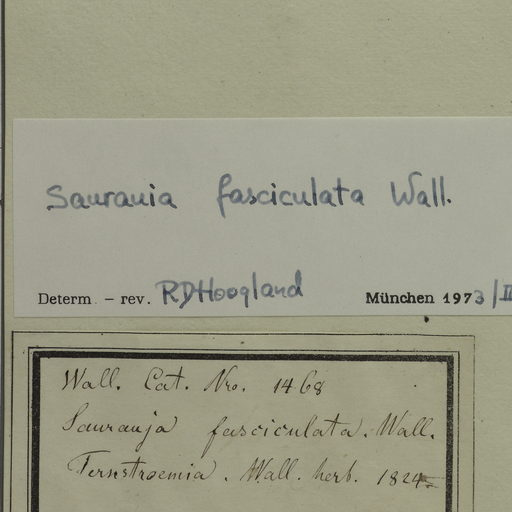 Saurauia fasciculata Wall.
Determ. – rev. RDHoogland München 1973/II
Wall. Cat. Nro. 1468
Saurauja fasciculata. Wall.
Ternstroemia. Wall. herb. 1824